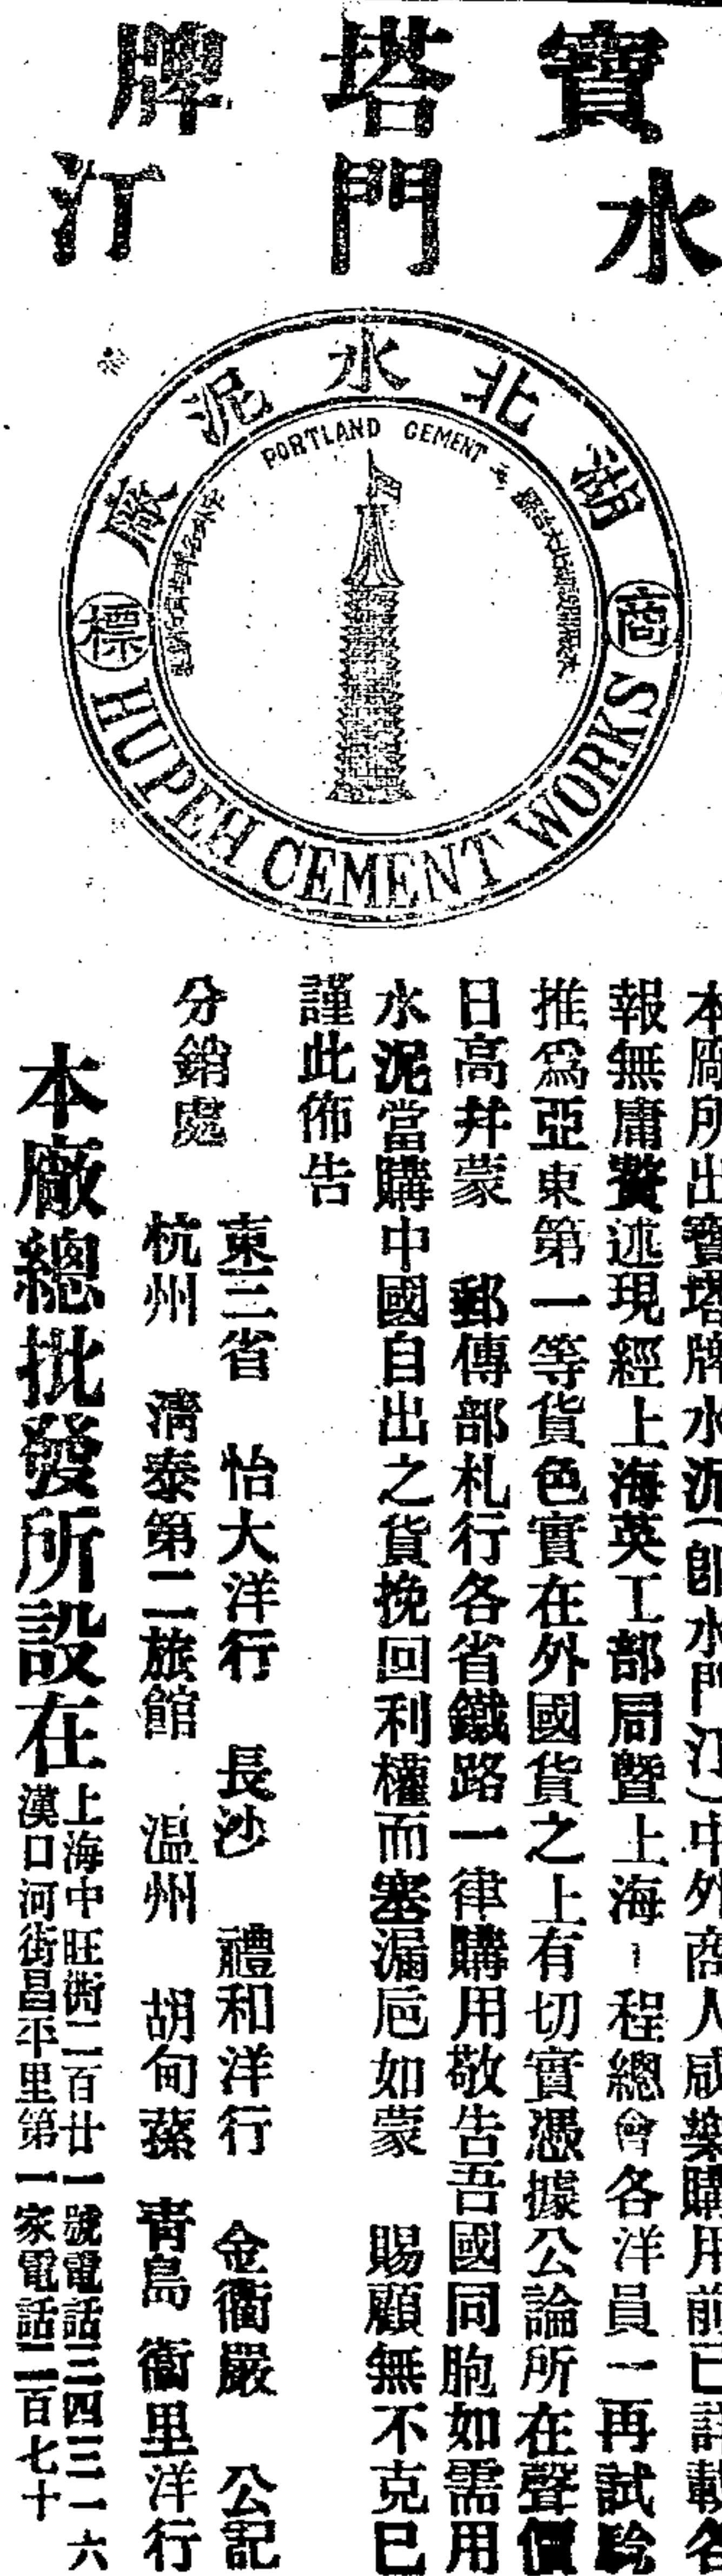 寶塔牌
水門汀
湖北水泥廠
商標
PORTLAND CEMENT
HUPEH CEMENT WORKS
本廠所出寶塔牌水泥(卽水門汀)中外商人咸樂購用前已詳載各
報無庸贅述現經上海英工部局曁上海工程總會各洋員一再試驗
推爲亞東第一等貨色實在外國貨之上有切實憑據公論所在聲價
日高幷蒙 郵傳部札行各省鐵路一律購用敬告吾國同胞如需用
水泥當購中國自出之貨挽回利權而塞漏巵如蒙 賜顧無不克已
謹此佈告
分銷處
東三省 怡大洋行 長沙 禮和洋行 金衢嚴 公記
杭州 淸泰第二旅館 温州 胡甸蓀 靑島 衞里洋行
本廠總批發所設在
上海中旺街二百廿一號電話三四三一六
漢口河街昌平里第一家電話二百七十